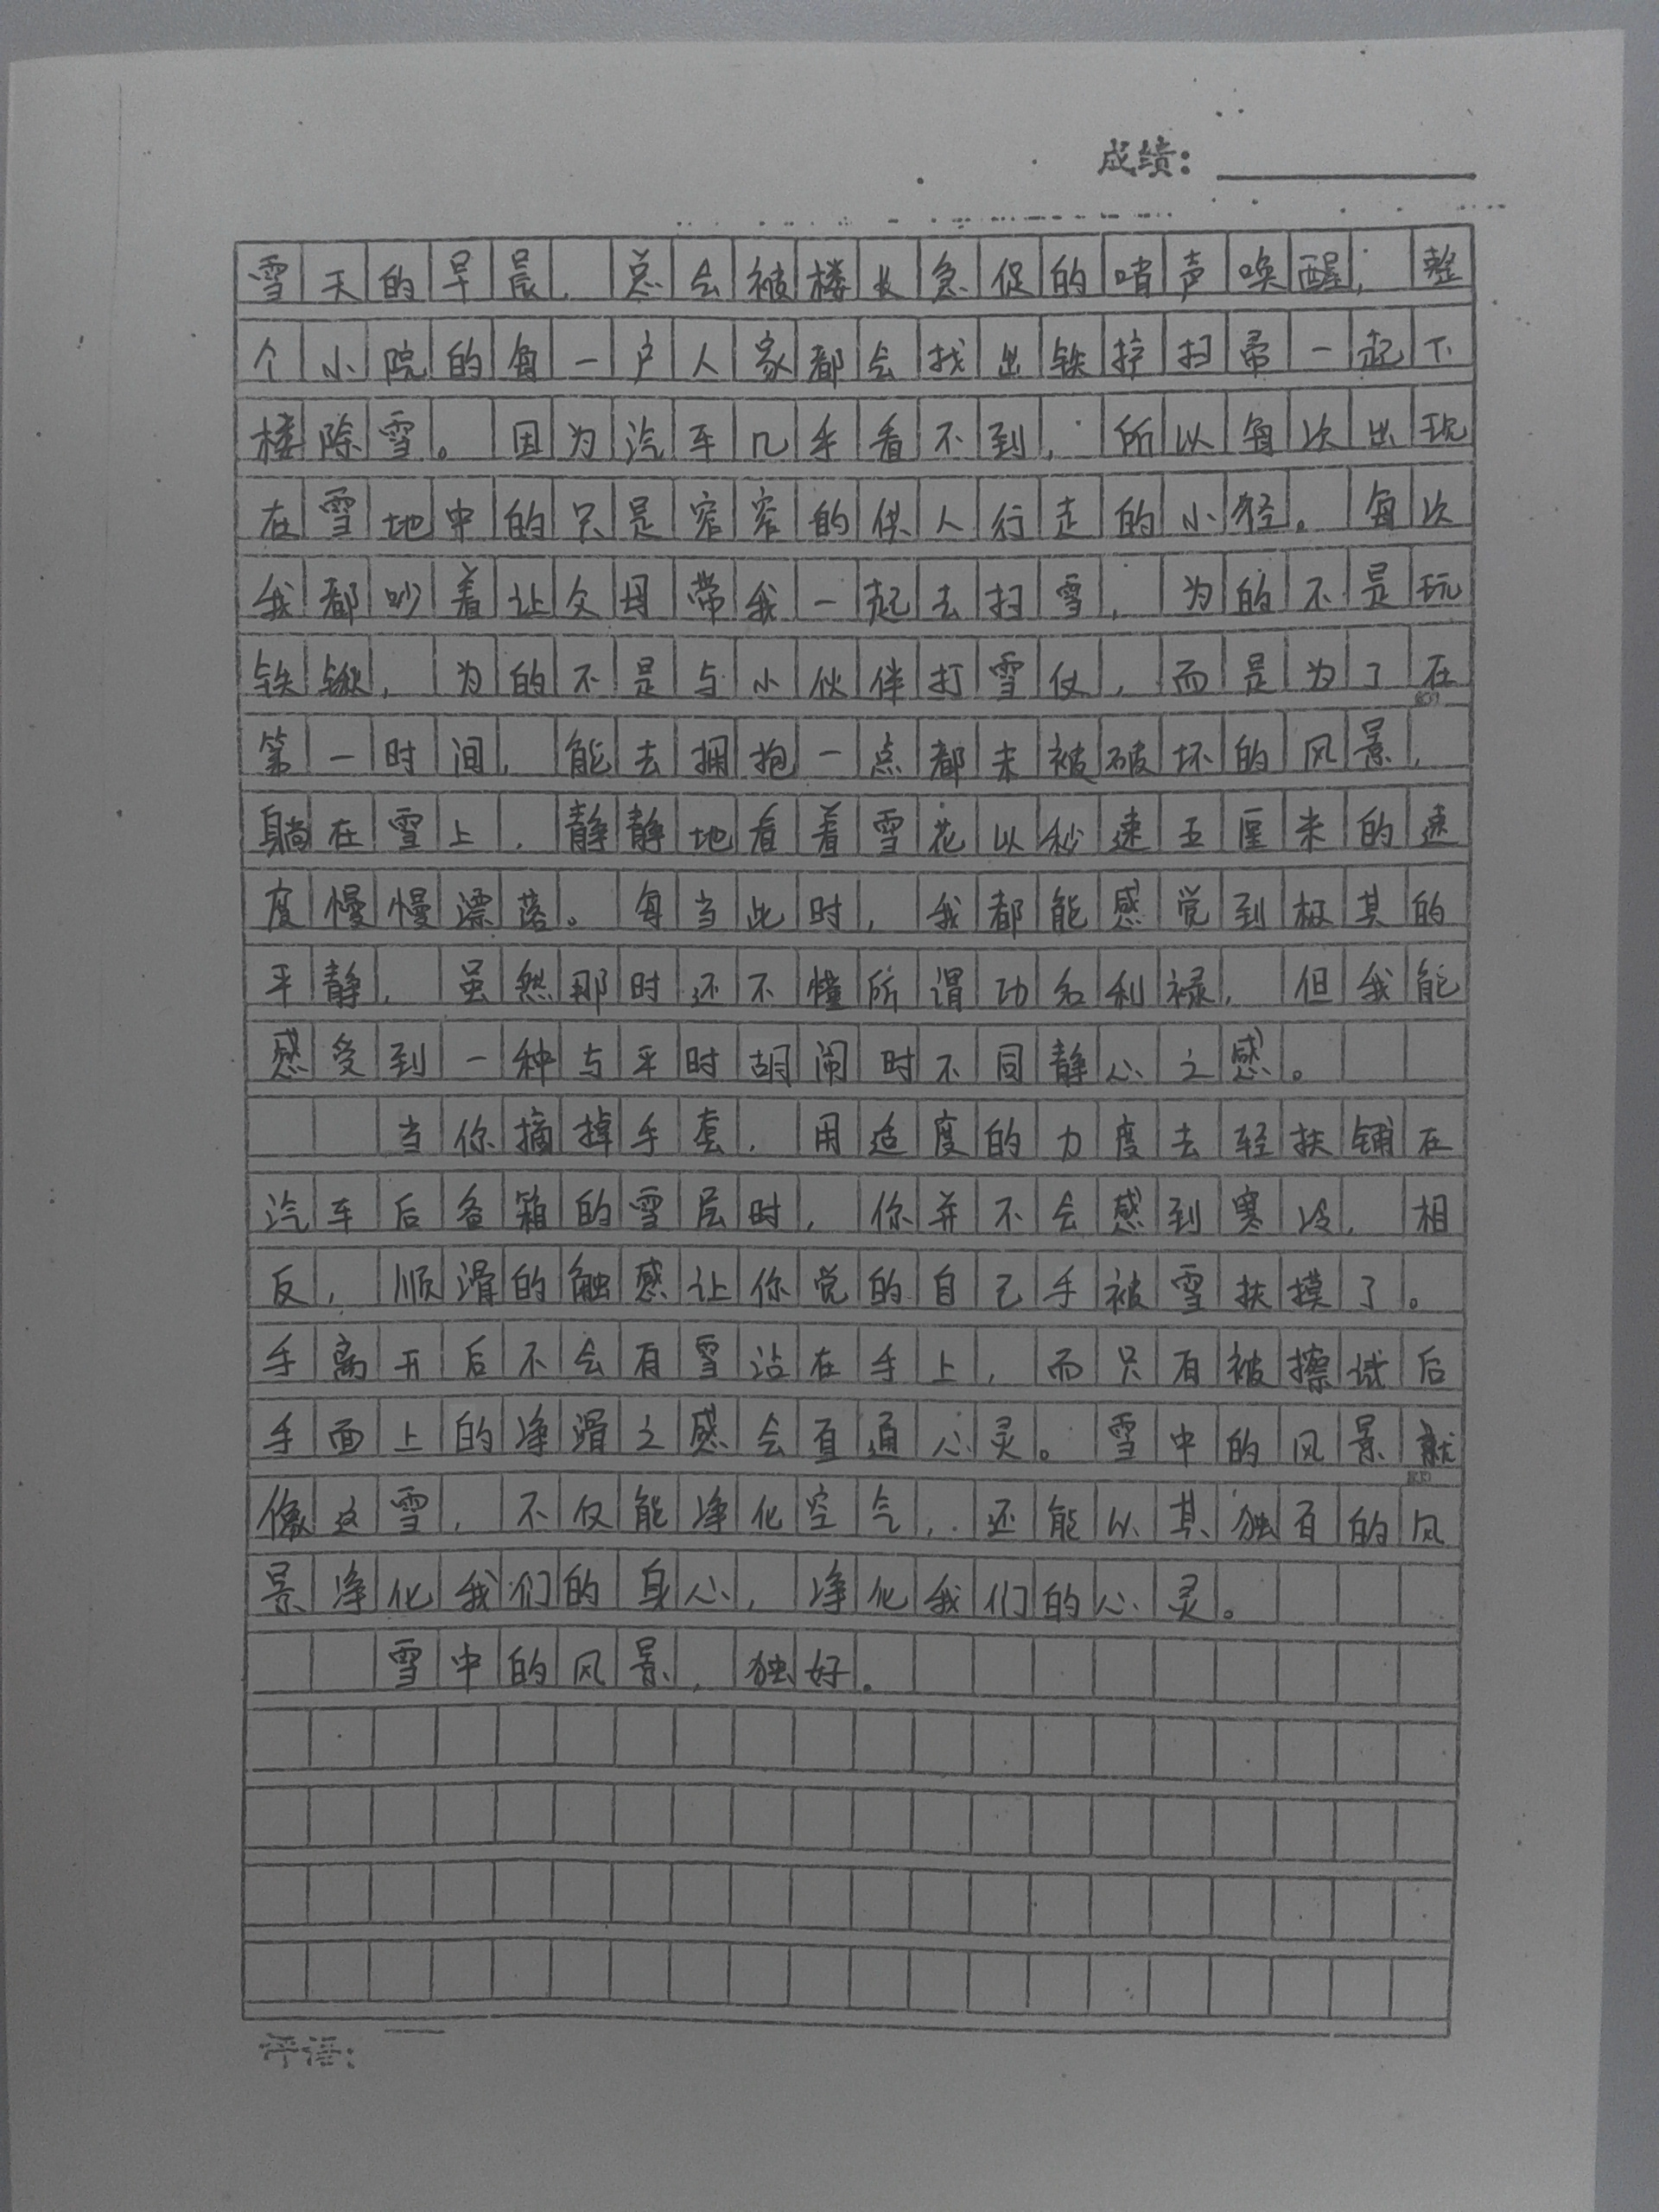 成绩：
雪天的早晨，总会被楼长急促的哨声唤醒，整
个小院的每一户人家都会找出铁拧扫帚一起下
楼除雪。因为汽车几乎看不到，所以每次出现
在雪地中的只是窄窄的供人行走的小径。每次
我都吵着让父母带我一起去扫雪，为的不是玩
铁锹，为的不是与小伙伴打雪仗，而是为了在
第一时间，能去拥抱一点都未被破坏的风景，
躺在雪上，静静地看着雪花以秒速五厘米的速
度慢慢漂落。每当此时，我都能感觉到极其的
平静，虽然那时还不懂所谓功名利禄，但我能
感受到一种与平时胡闹时不同静心之感。
当你摘掉手套，用适度的力度去轻扶铺在
汽车后备箱的雪层时，你并不会感到寒冷，相
反，顺滑的触感让你觉的自己手被雪扶摸了。
手离开后不会有雪沾在手上，而只有被擦拭后
手面上的净滑之感会直通心灵。雪中的风景就
像这雪，不仅能净化空气，还能以其独有的风
景净化我们的身心，净化我们的心灵。
雪中的风景，独好。
评语：